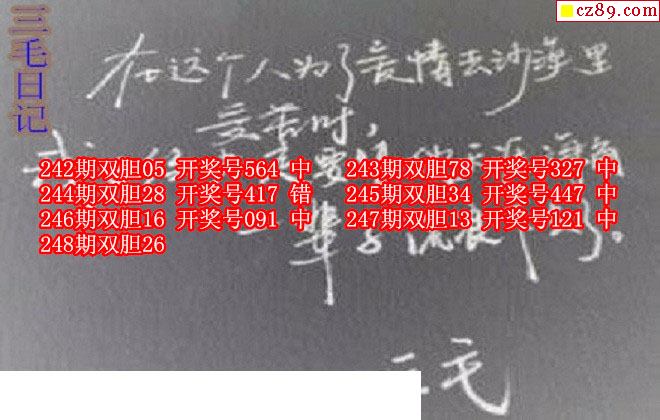 cz89.com
三毛日记
在这个人为了爱情去沙漠里
受苦时,
242期双胆05 开奖号564 中 243期双胆78 开奖号327 中
244期双胆28 开奖号417 错 245期双胆34 开奖号447 中
246期双胆16 开奖号091 中 247期双胆13 开奖号121 中
248期双胆26
一辈子流浪下去了。
三毛